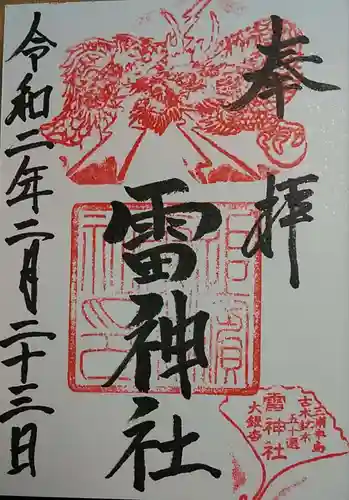 奉拝
雷神社
令和二年二月二十三日
三浦半島
雷神社
大銀杏